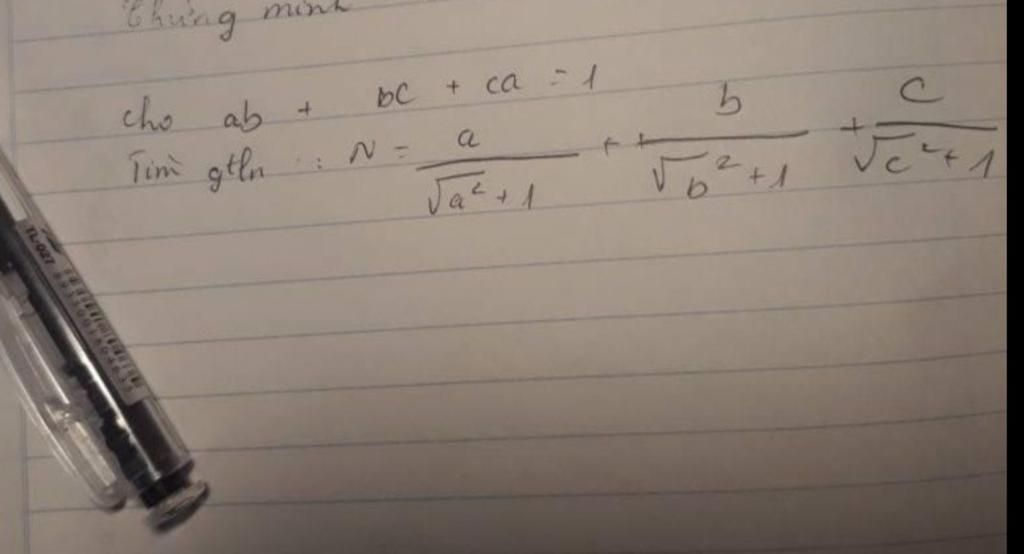 Chứng minh
cho ab + bc + ca = 1
Tìm gtln : N = a/√a²+1 + + b/√b²+1 + c/√c²+1
TL-027